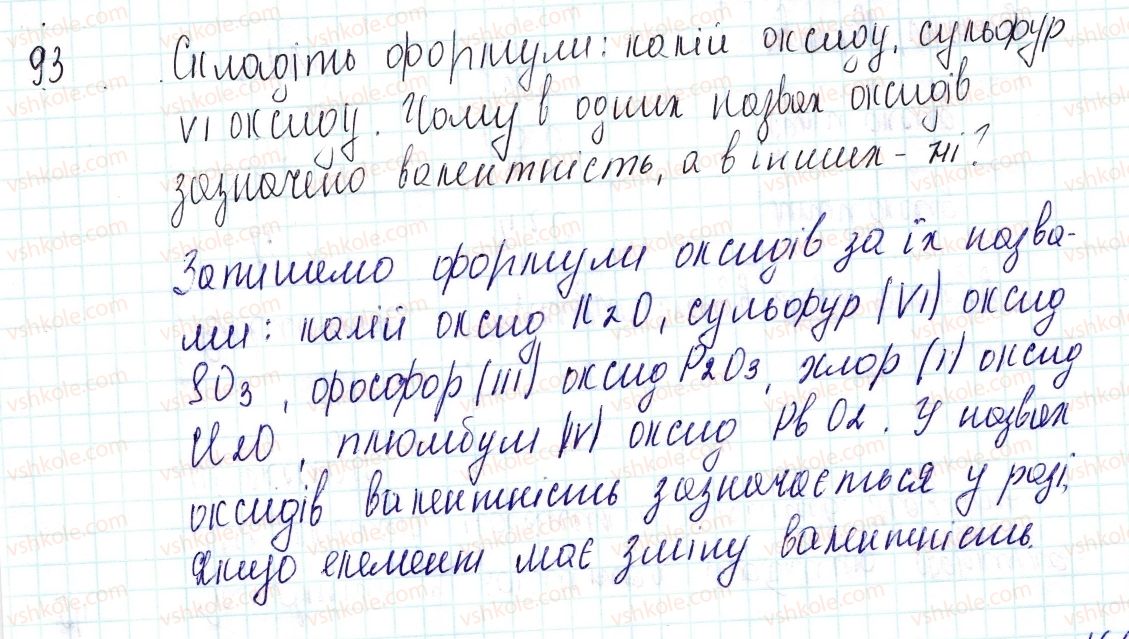 93 Складіть формули: калій оксиду, сульфур
VI оксиду. Чому в одних назвах оксидів
зазначено валентність, а в інших - ні?
Запишемо формули оксидів за їх назва-
ми: калій оксид K2O, сульфур (VI) оксид
SO3, фосфор (III) оксид P2O3, хлор (I) оксид
Cl2O, плюмбум (IV) оксид PbO2. У назвах
оксидів валентність зазначається у разі,
якщо елемент має зміну валентність.